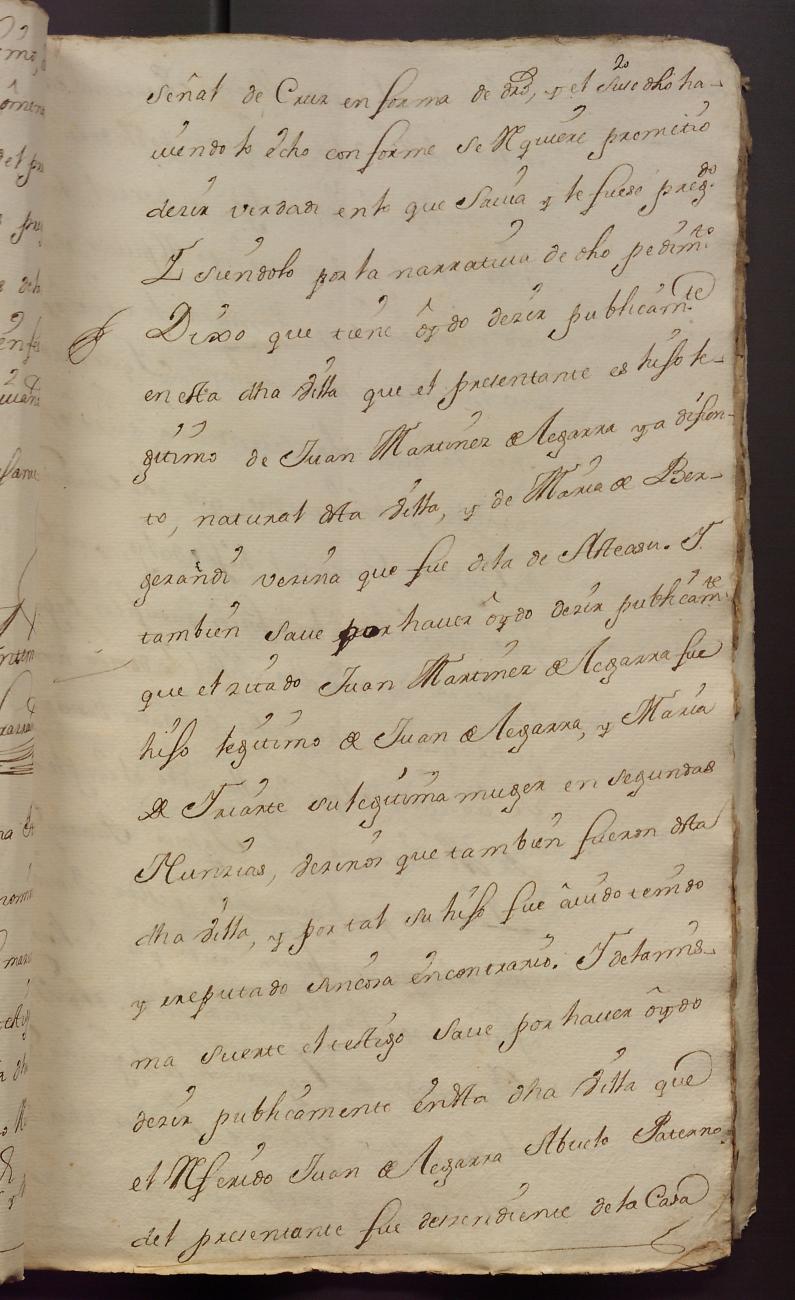 señal de Cruz en forma de dro, y el suso dho ha-
uiendo lo echo conforme se Requiere premitio
dezir verdad en lo que Sauia y le fuese pregdo
I siendolo por la narratiua de dho pedimto
Dixo que tiene oydo dezir publicamte
en esta dha Villa que el presentante es hijo le-
gitimo de Juan Martinez de Legarra ya difun-
to, natural desta Villa, y de Maria de Ber-
gerandi vezina que fue de la de Asteasu. I
tambien saue por hauer oydo dezir publicamte
que el zitado Juan Martinez de Legarra fue
hijo legitimo de Juan de Legarra, y Maria
de Iriarte su legitima muger en segundas
Nunzias, vezinos que tambien fueron desta
dha Villa, y por tal su hijo fue auido tenido
y rreputado sin cosa en contrario. I de la mis-
ma suerte el testigo saue por hauer oydo
dezir publicamente en esta dha Villa que
el Referido Juan de Legarra Abuelo Paterno
del presentante fue deszendiente de la Casa